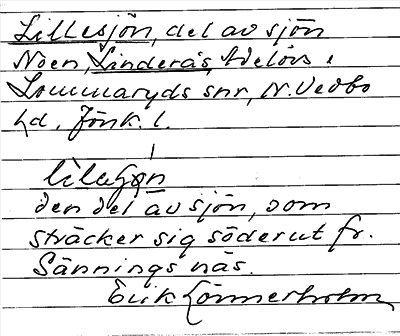 Lillesjön, del av sjön
Noen, Linderås, Adelövs o.
Lommaryds snr, N. Vedbo
hd. Jönk. l.
lilaʃön
den del av sjön, som
sträcker sig söderut fr.
Sännings näs.
Erik Lönnerholm